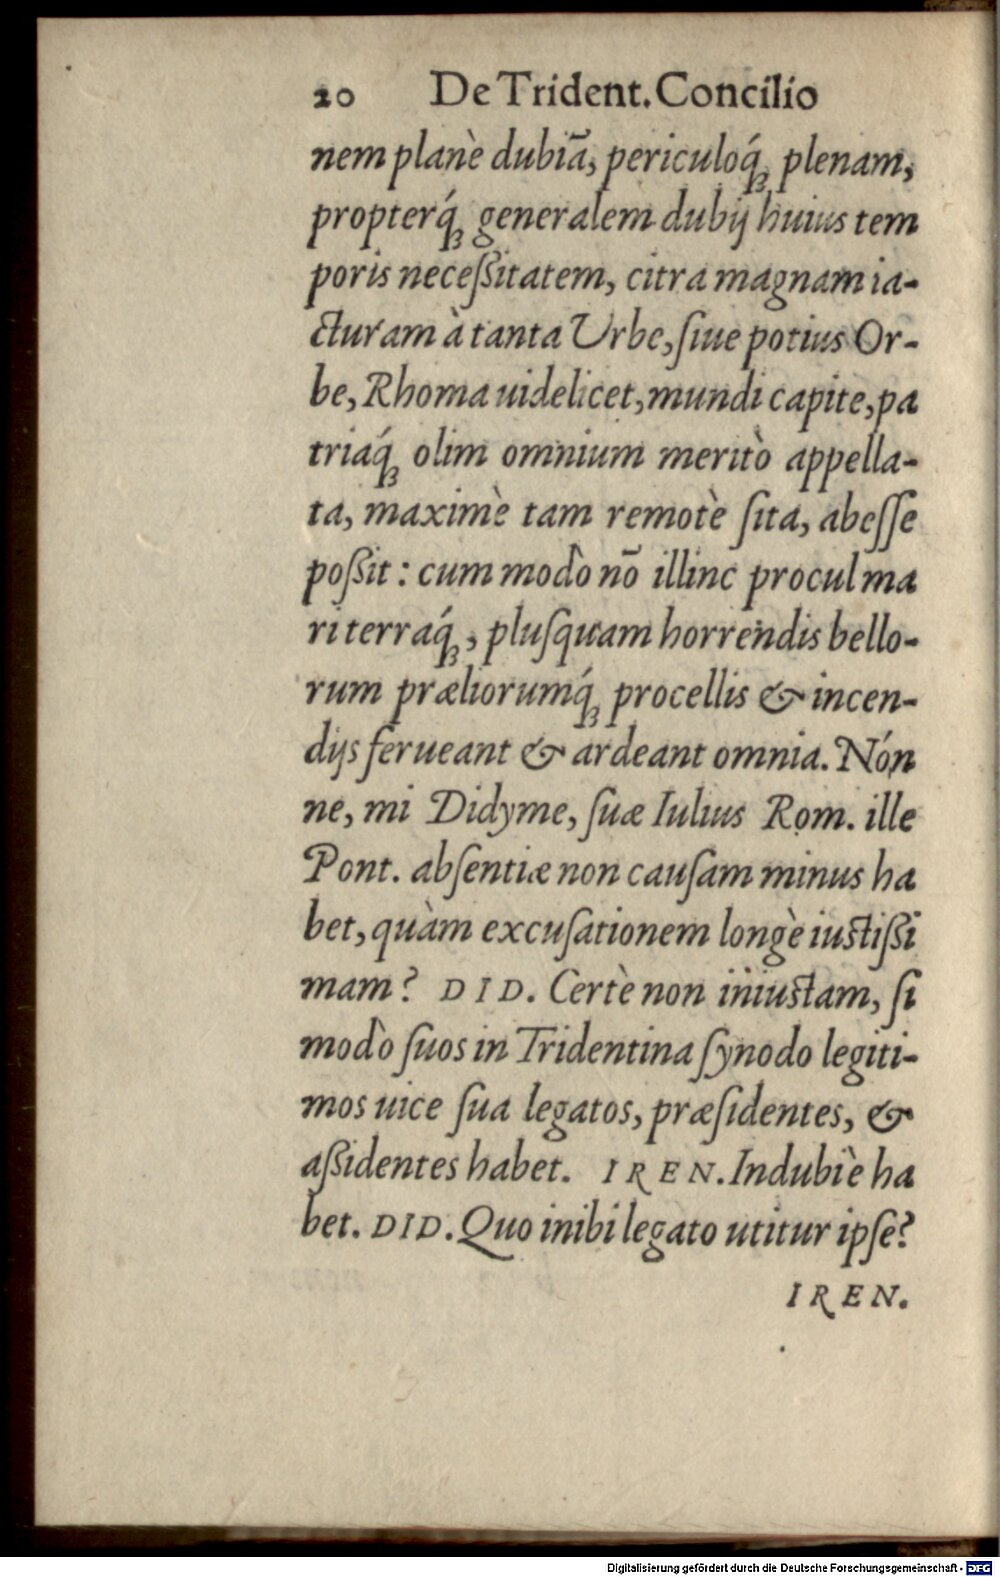 20 De Trident. Concilio
nem planè dubiā, periculoq́ꝫ plenam,
propterq́ꝫ generalem dubij huius tem
poris neceſsitatem, citra magnam ia-
cturam à tanta Urbe, ſiue potius Or-
be, Rhoma uidelicet, mundi capite, pa
triaq́ꝫ olim omnium meritò appella-
ta, maximè tam remotè ſita, abeſſe
poſsit: cum modò nō illinc procul ma
ri terraq́ꝫ, pluſquam horrendis bello-
rum præliorumq́ꝫ procellis & incen-
dijs ferueant & ardeant omnia. Nón
ne, mi Didyme, ſuæ Iulius Rom. ille
Pont. abſentiæ non cauſam minus ha
bet, quàm excuſationem longè iuſtiſsi
mam? DID. Certè non iniuſtam, ſi
modò ſuos in Tridentina ſynodo legiti-
mos uice ſua legatos, præſidentes, &
aſsidentes habet. IREN. Indubiè ha
bet. DID. Quo inibi legato utitur ipſe?
IREN.
Digitalisierung gefördert durch die Deutsche Forschungsgemeinschaft - DFG